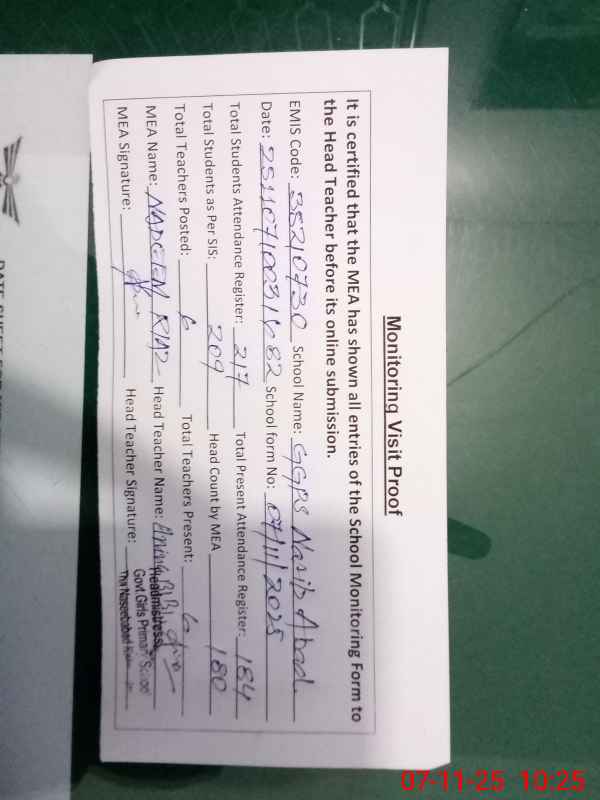 Monitoring Visit Proof
It is certified that the MEA has shown all entries of the School Monitoring Form to
the Head Teacher before its online submission.
EMIS Code: 38210730 School Name: GGPS Nasib Abad
Date: 251107100314682 School form No: 07/11/2025
Total Students Attendance Register: 217 Total Present Attendance Register: 184
Total Students as Per SIS: 209 Head Count by MEA 180
Total Teachers Posted: 6 Total Teachers Present: 6
MEA Name: NADEEM RIAZ Head Teacher Name:
MEA Signature: Head Teacher Signature:
Headmistress
Govt. Girls Primary School
DATE SHEET FOR
07-11-25 10:25